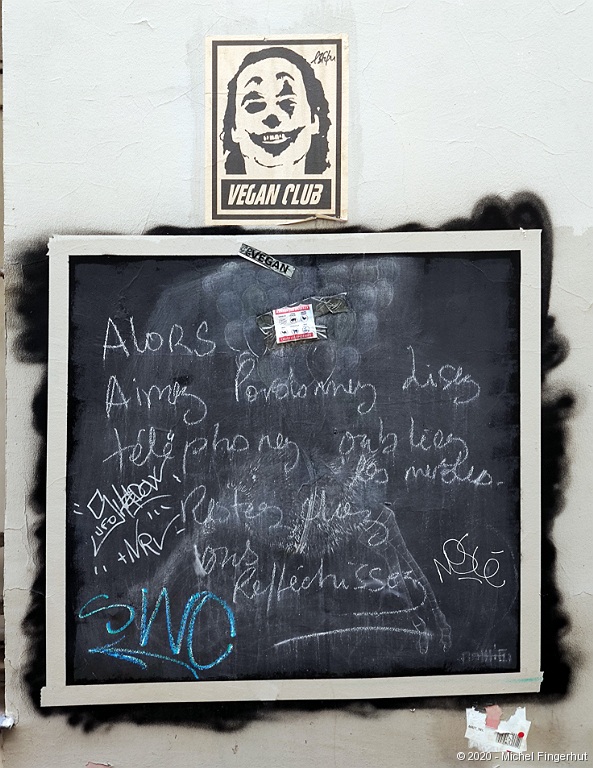 VEGAN CLUB
VEGAN
Alors
Aimez Pardonnez Lisez
téléphonez oubliez
les merdes.
Restez chez
vous
Refléchissez
SHADOW
UFO
+NRV
SWO
© 2020 - Michel Fingerhut